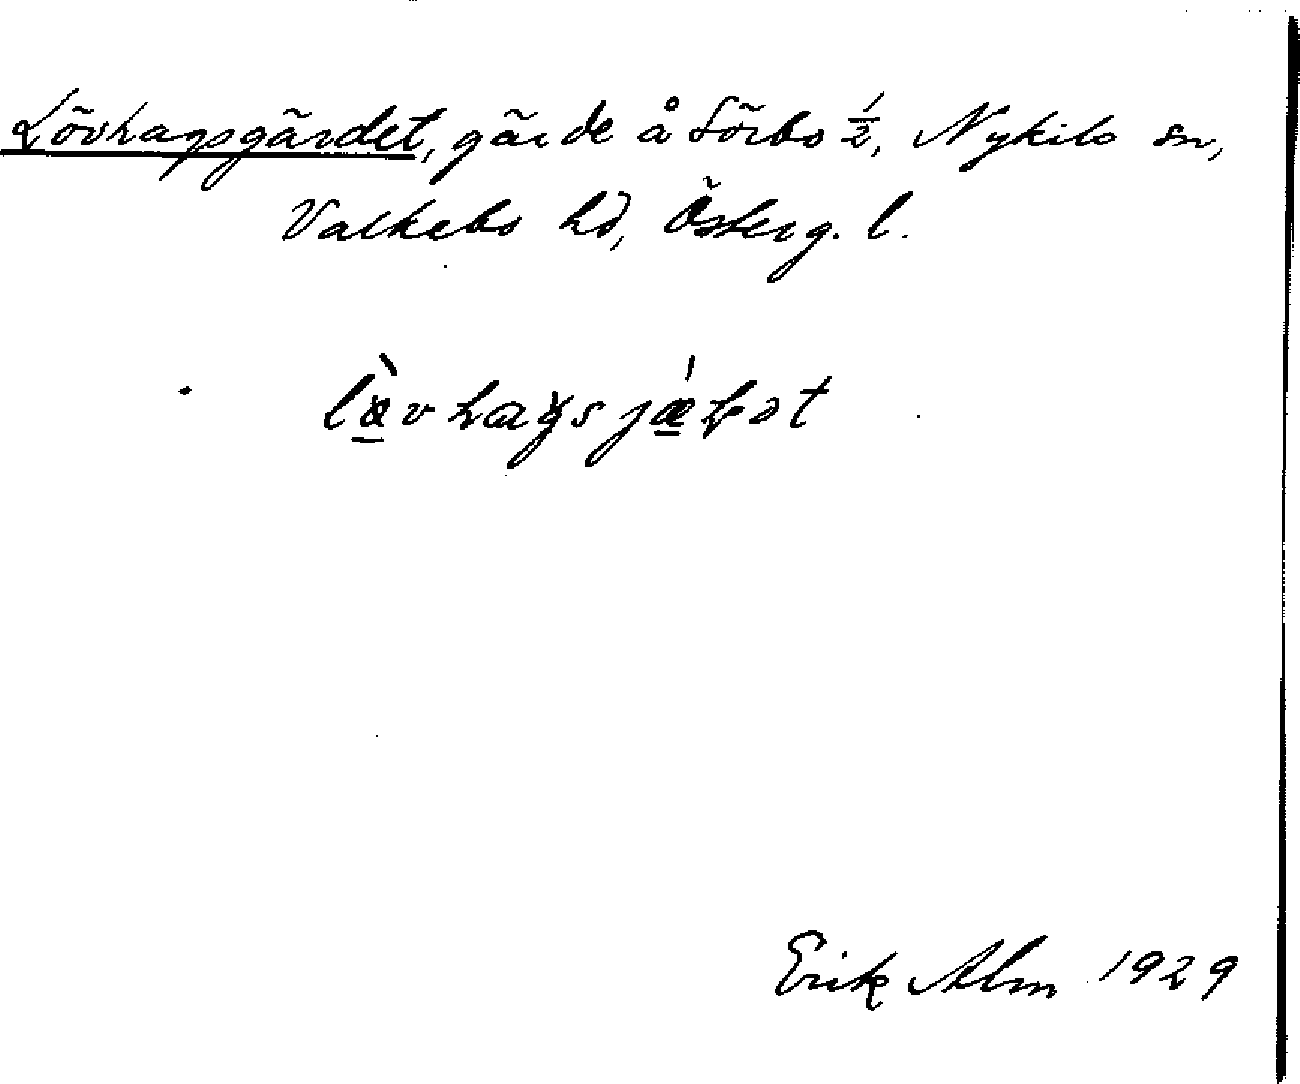 Lövhagsgärdet, gärde å Sörbo ½, Nykils sn,
Valkebo hd, Österg. l.
Erik Alm 1929